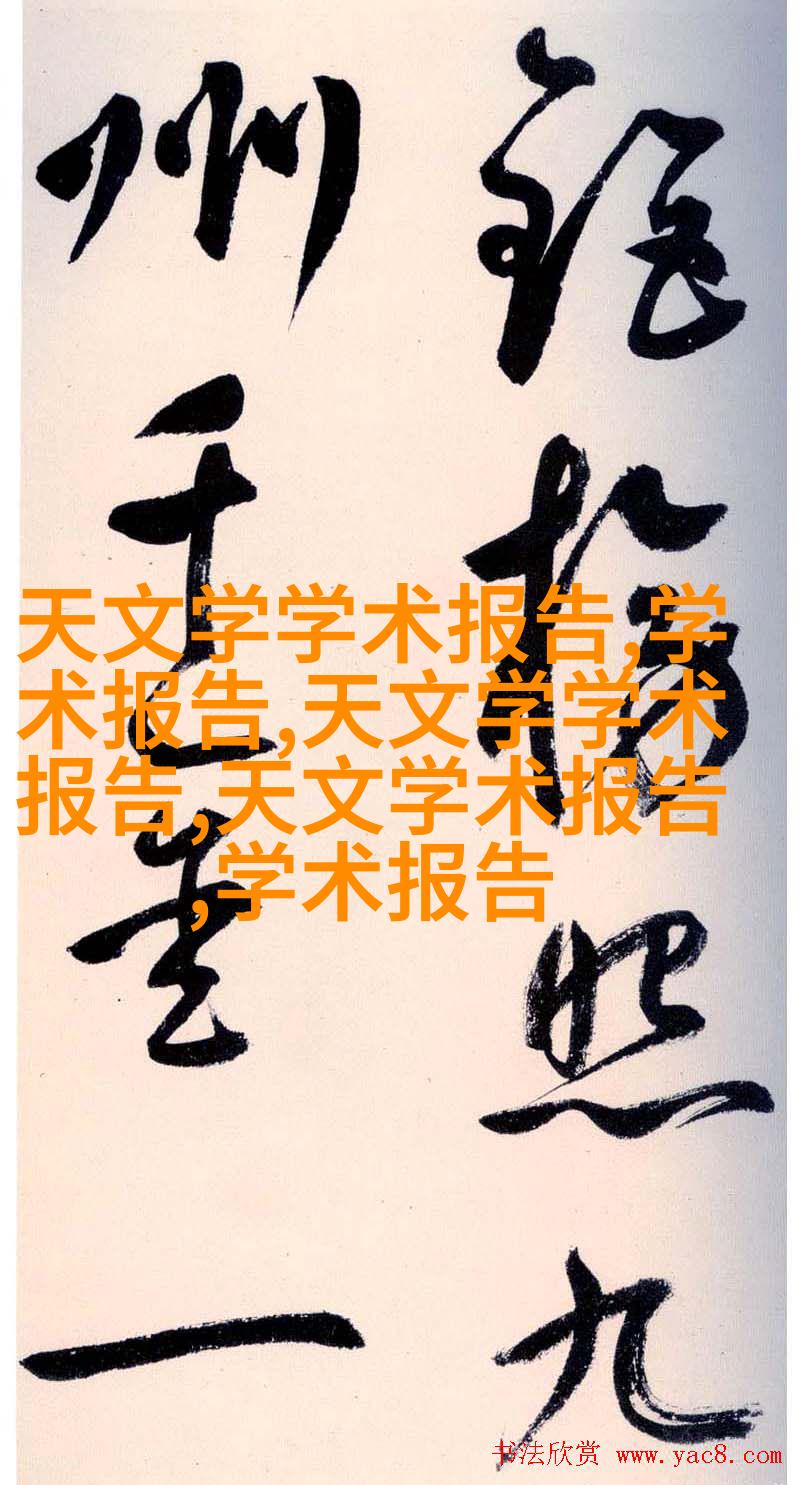 照九
州千一
天文学学术报告,学
术报告,天文学学术
报告,天文学术报告
,学术报告
书法欣赏 www.yac8.com